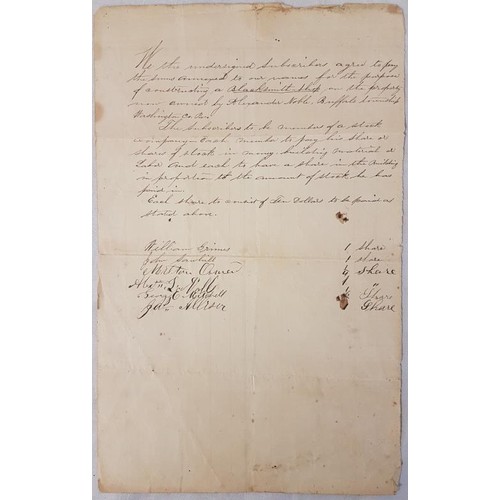 We the undersigned Subscribers agree to pay
the sums annexed to our names for the purpose
of constructing a Blacksmith Shop on the property
now owned by Alexander Noble, Buffalo township
Washington Co. Pa.
The Subscribers to be members of a stock
company Each member to pay his share or
shares of stock in money building material or
Labor And each to have a share in the building
in proportion to the amount of stock he has
paid in.
Each share to consist of Ten Dollars to be paid as
stated above.
William Grimes 1 share
John 1 share
1 Share
1 "
George 1 Share
Share